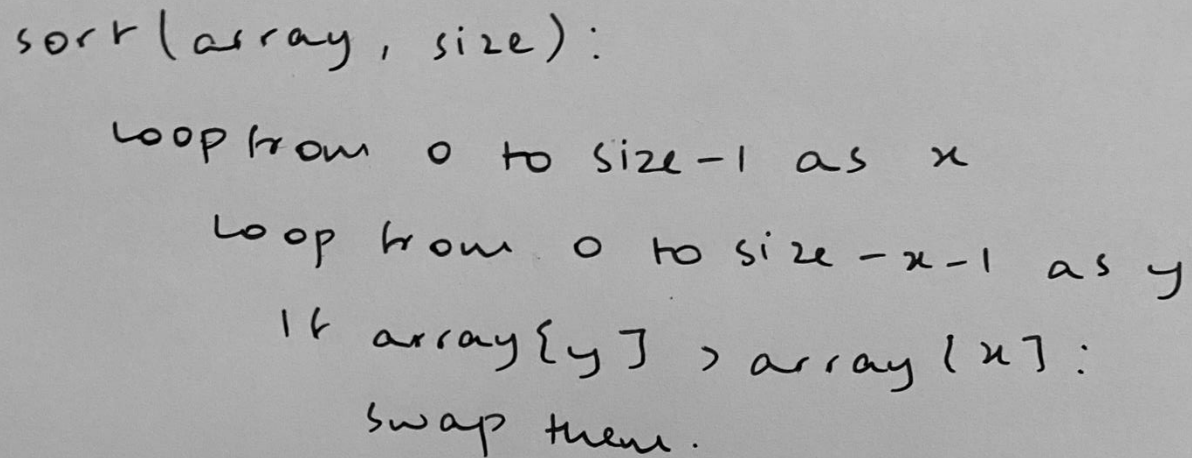 sort(array, size):
Loop from 0 to size-1 as x
Loop from 0 to size-x-1 as y
If array[y] > array[x]:
swap them.